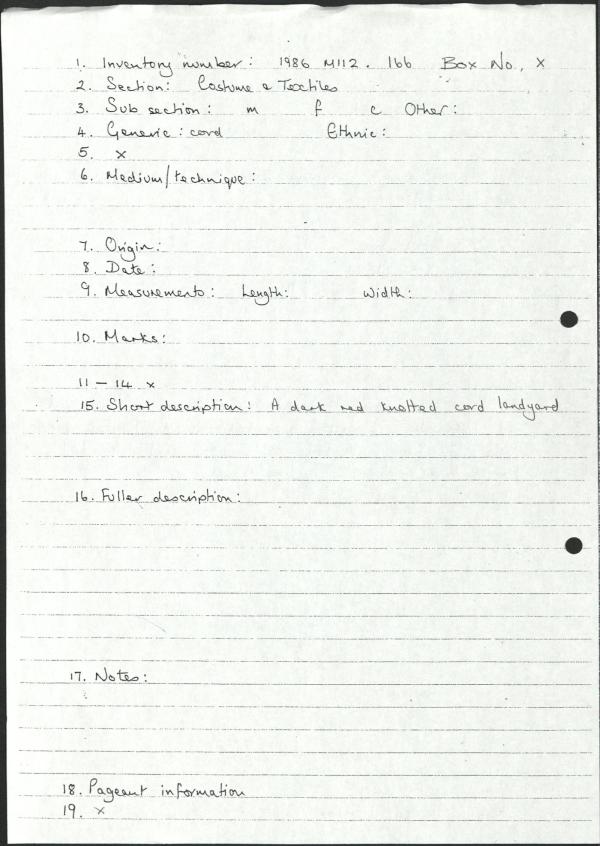 1. Inventory number: 1986 M112. 166 Box No. x
2. Section: Costume & Textiles
3. Sub section: m f c Other:
4. Generic: cord Ethnic:
5. x
6. Medium/technique:
7. Origin:
8. Date:
9. Measurements: Length: Width:
10. Marks:
11 – 14 x
15. Short description: A dark red knotted cord landyard
16. Fuller description:
17. Notes:
18. Pageant information
19. x